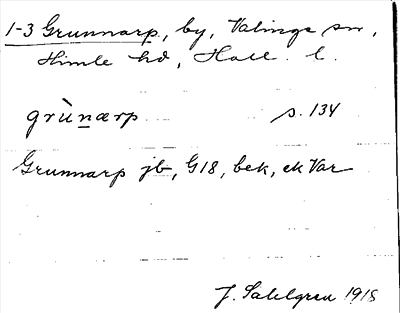 1-3 Grunnarp, by, Valinge sn,
Himle hd, Hall. l.
grùnærp s. 134
Grunnarp jb, G18, bek, ek Var
J. Sahlgren 1918